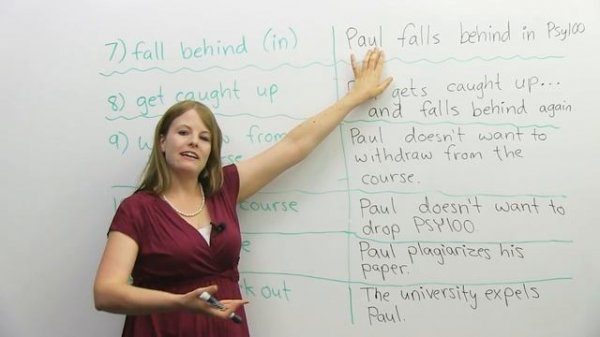 7) fall behind (in)
Paul falls behind in Psy100
8) get caught up
gets caught up...
and falls behind again
9) w from
course
Paul doesn't want to
withdraw from the
course.
course
Paul doesn't want to
drop PSY100.
e
Paul plagiarizes his
paper.
k out
The university expels
Paul.